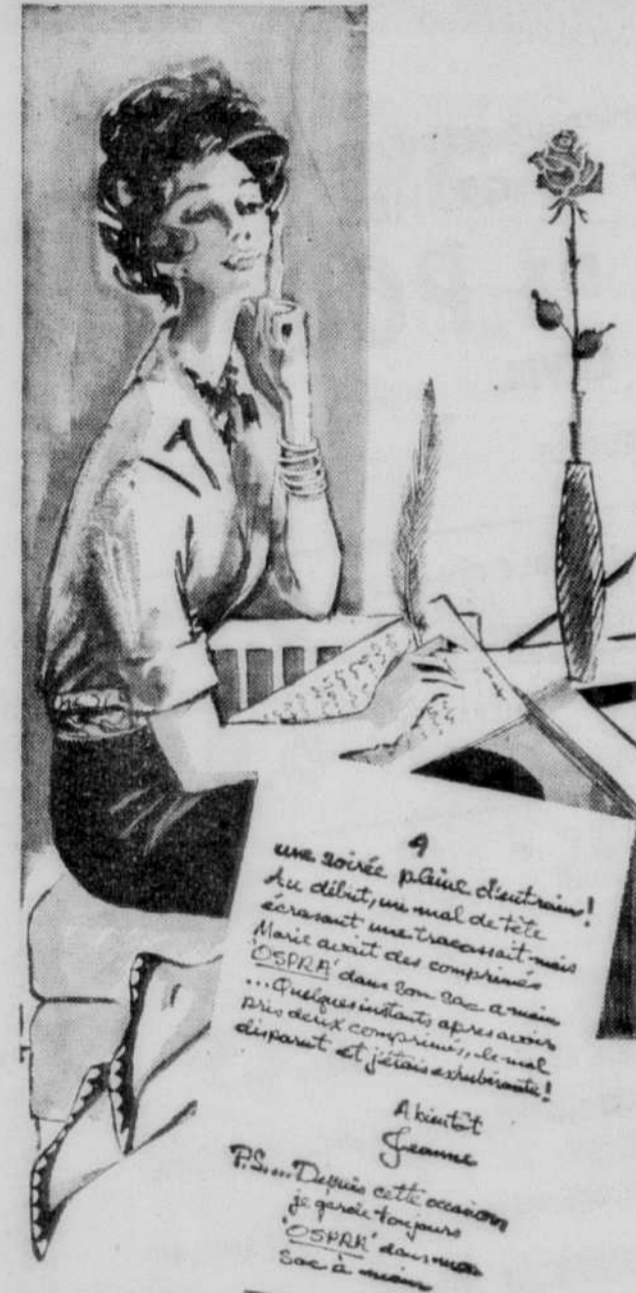 4
une soirée pleine d'entrain!
Au début, un mal de tête
écrasant me tracassait mais
Marie avait des comprimés
'OSPRA' dans son sac a main
... Quelques instants apres avoir
pris deux comprimés, le mal
disparut et j'étais exubérante!
A bientôt
Jeanne
P.S.... Depuis cette occasion
je garde toujours
'OSPRA' dans mon
sac à main